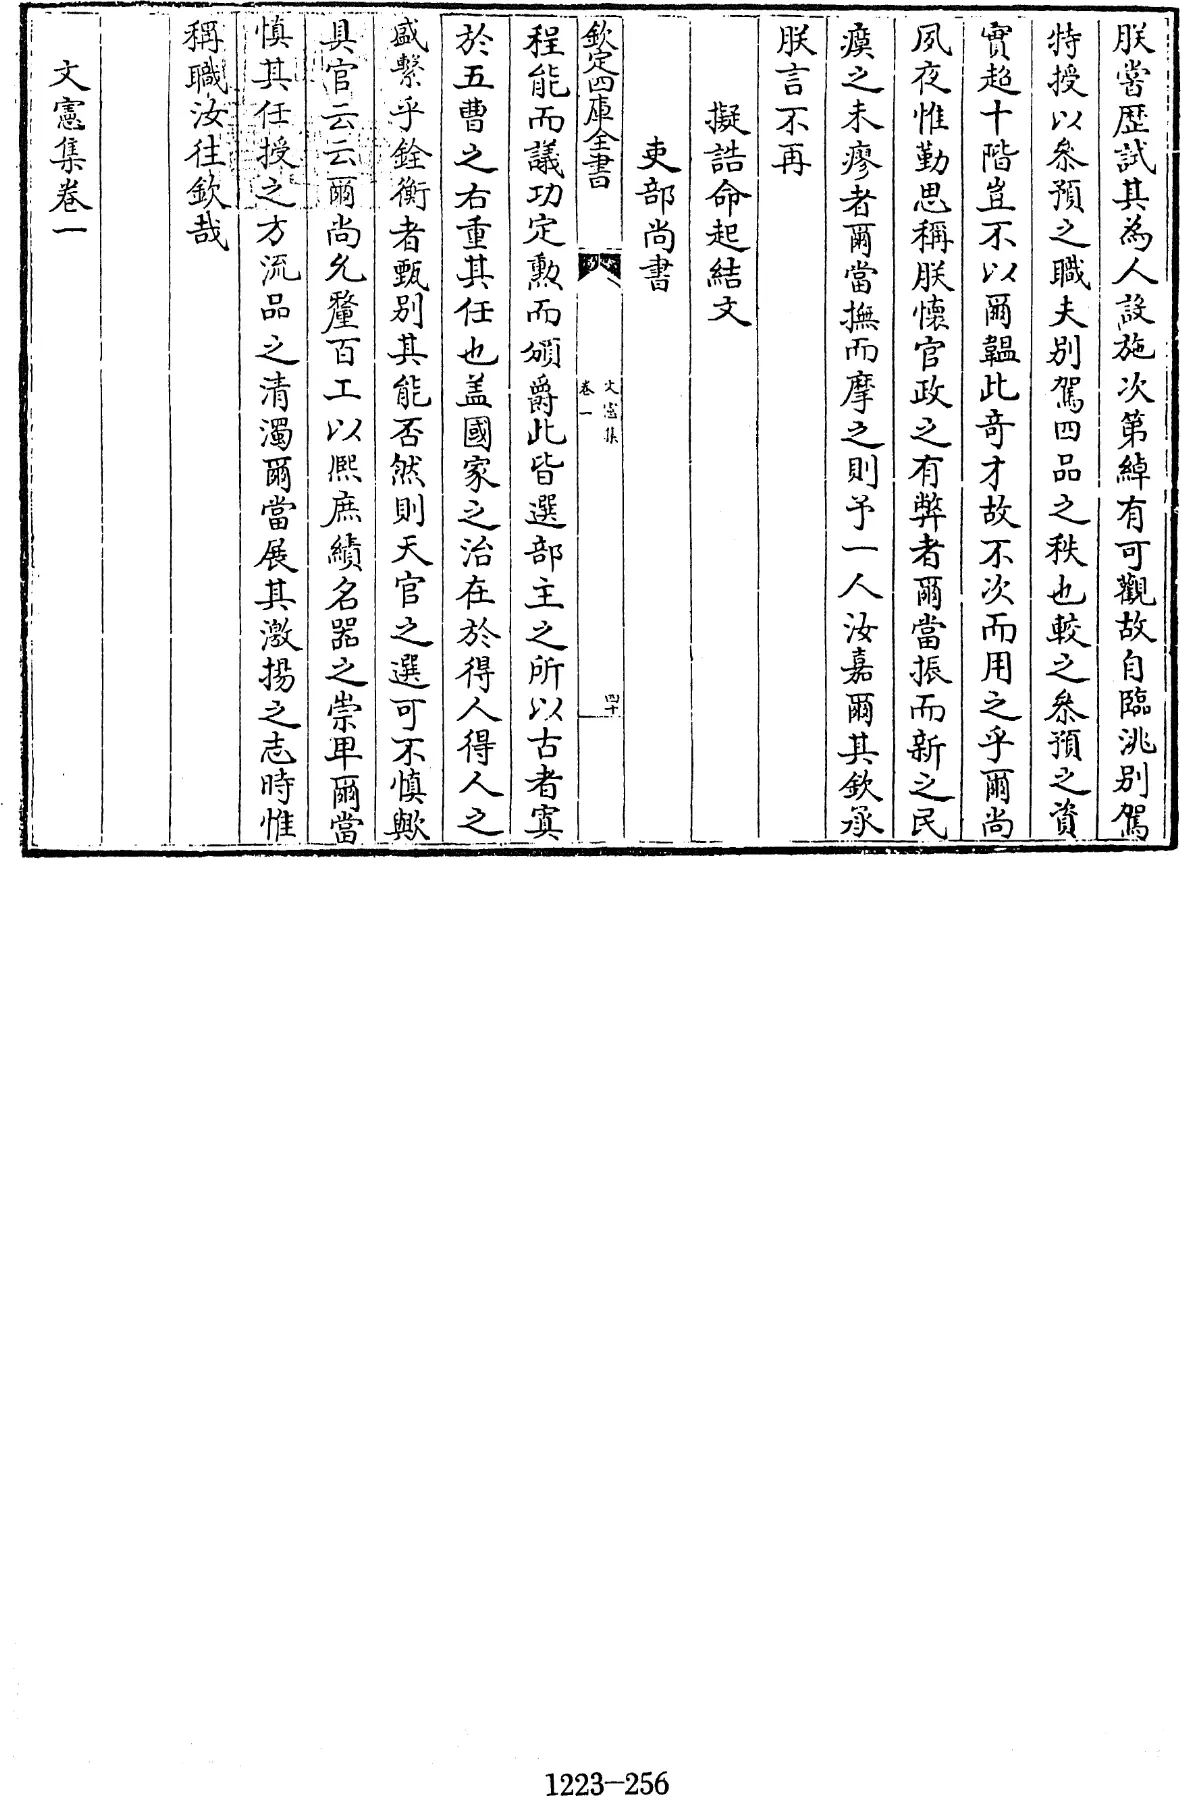 朕嘗歴試其為人設施次第綽有可觀故自臨洮别駕
特授以叅預之職夫别駕四品之秩也較之叅預之資
實超十階豈不以爾韞此竒才故不次而用之乎爾尚
夙夜惟勤思稱朕懷官政之有弊者爾當振而新之民
瘼之未瘳者爾當撫而摩之則予一人汝嘉爾其欽承
朕言不再
擬誥命起結文
吏部尚書
欽定四庫全書
文憲集
卷一
四十
程能而議功定勲而頒爵此皆選部主之所以古者寘
於五曹之右重其任也盖國家之治在於得人得人之
盛繫乎銓衡者甄别其能否然則天官之選可不慎歟
具官云云爾尚允釐百工以熙庶績名器之崇卑爾當
慎其任授之方流品之清濁爾當展其激揚之志時惟
稱職汝往欽哉
文憲集卷一
1223-256